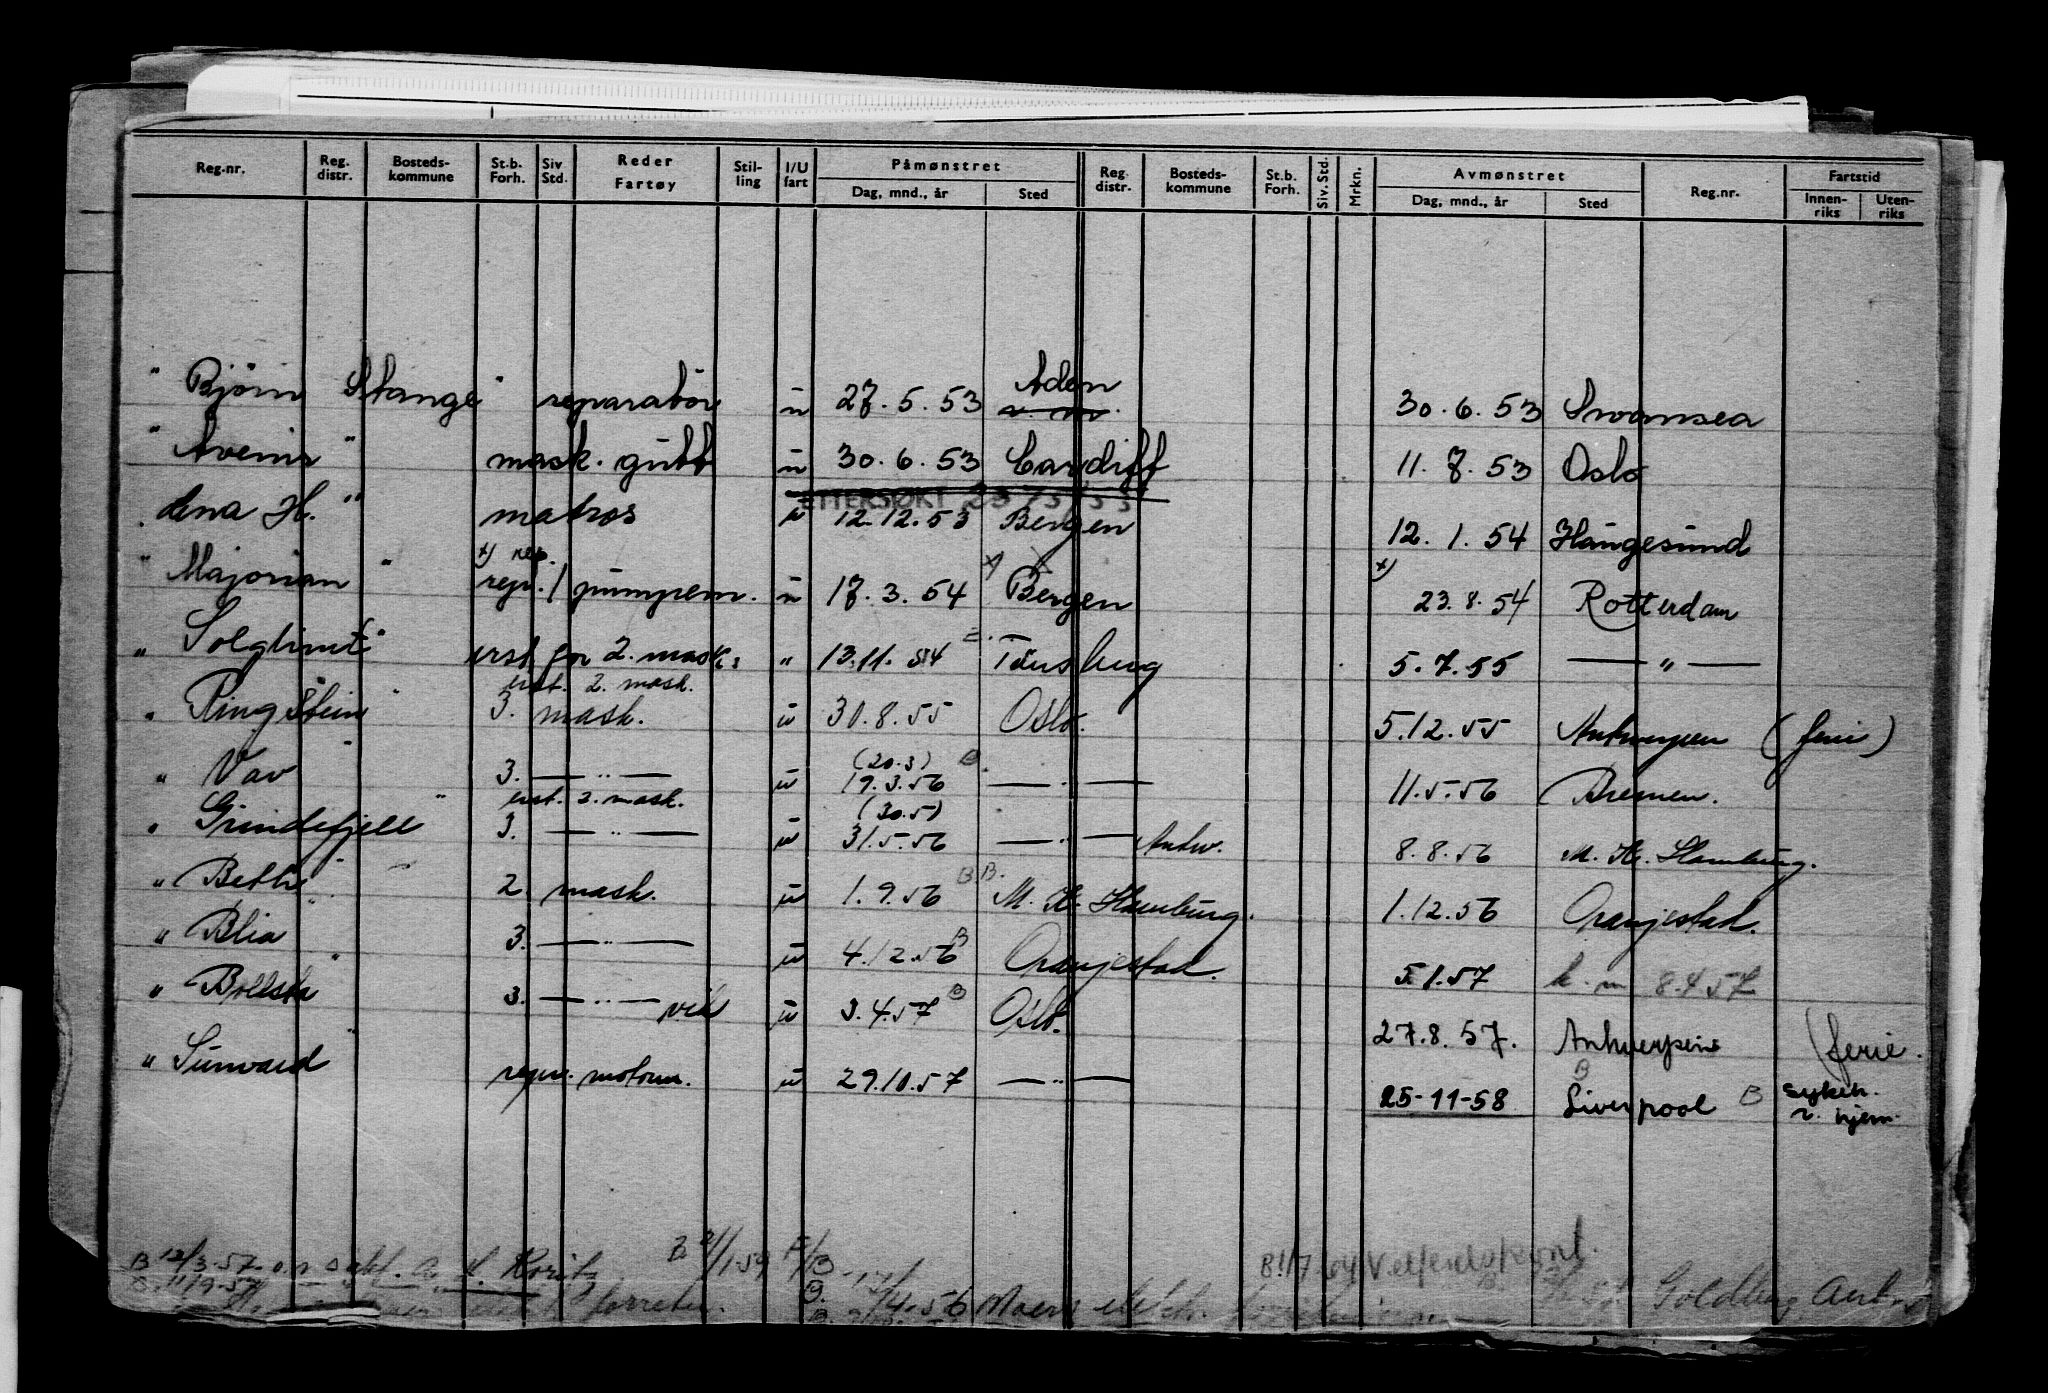 Reg.nr. Reg. distr. Bosteds-kommune St.b. Forh. Siv Std. Reder Fartøy Stil-ling I/U fart Påmønstret Dag, mnd., år Sted Reg. distr. Bosteds-kommune St.b. Forh. Siv. Std. Mrkn. Avmønstret Dag, mnd., år Sted Reg.nr. Fartstid Innen-riks Uten-riks
" Björn Stange " reparatör u 27.5.53 Aden 30.6.53 Swansea
" Avenir " mask. gutt u 30.6.53 Cardiff 11.7.53 Oslo
ETTERSØKT
" dena H. " matros u 12.12.53 Bergen 12.1.54 Haugesund
x) rep. x) x)
" Majorian " repr./pumpem. u 17.3.54 Bergen 23.8.54 Rotterdam
" Solglimt " erst for 2. mask. " 13.11.54 Tønsberg 5.7.55 — " —
erst. 2. mask.
" Ringstein " 3. mask. u 30.8.55 Oslo. 5.12.55 Antwerpen (ferie)
(20.3) B.
" Vav " 3. — " — u 19.3.56 — " — 11.5.56 Bremen.
erst. 2. mask. (30.5)
" Grindefjell " 3. — " — u 31.5.56 — " — Antw. 8.8.56 M. K. Hamburg.
" Beth " 2. mask. u 1.9.56 B.B. M. K. Hamburg. 1.12.56 Oranjestad.
" Blia " 3. — " — u 4.12.56 B Oranjestad. 5.1.57 h.m 8.4.57
" Bollsta " 3. — " — vik u 3.4.57 B Oslo. 27.8.57. Antwerpen (ferie.
" Sunvard " repr. motorm. u 29.10.57 — " — 25-11-58 B Liverpool B sykeh. r. hjem.
B 12/3-57 B 2/1-59 F/B B 1/7 64 Velferdskont.
B. 11/9-57 B. /4.56 Goldberg